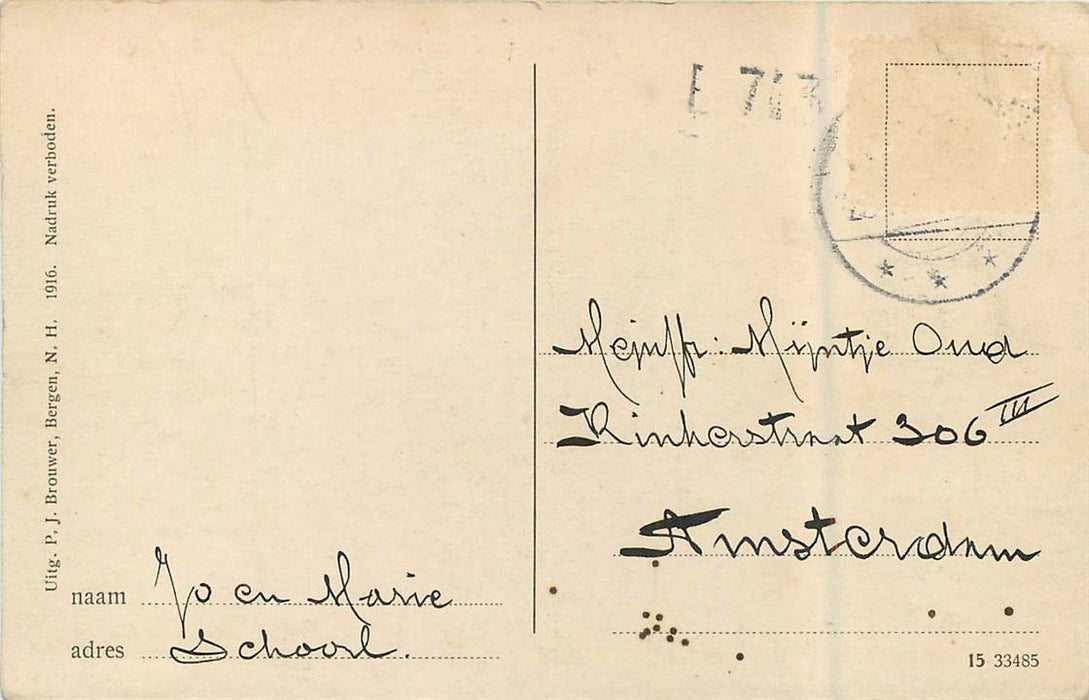 Uitg. P. J. Brouwer, Bergen, N. H. 1916. Nadruk verboden.
naam Jo en Marie
adres Schoorl.
Mejuffr: Mijntje Oud
Kinkerstraat 306 III
Amsterdam
15 33485